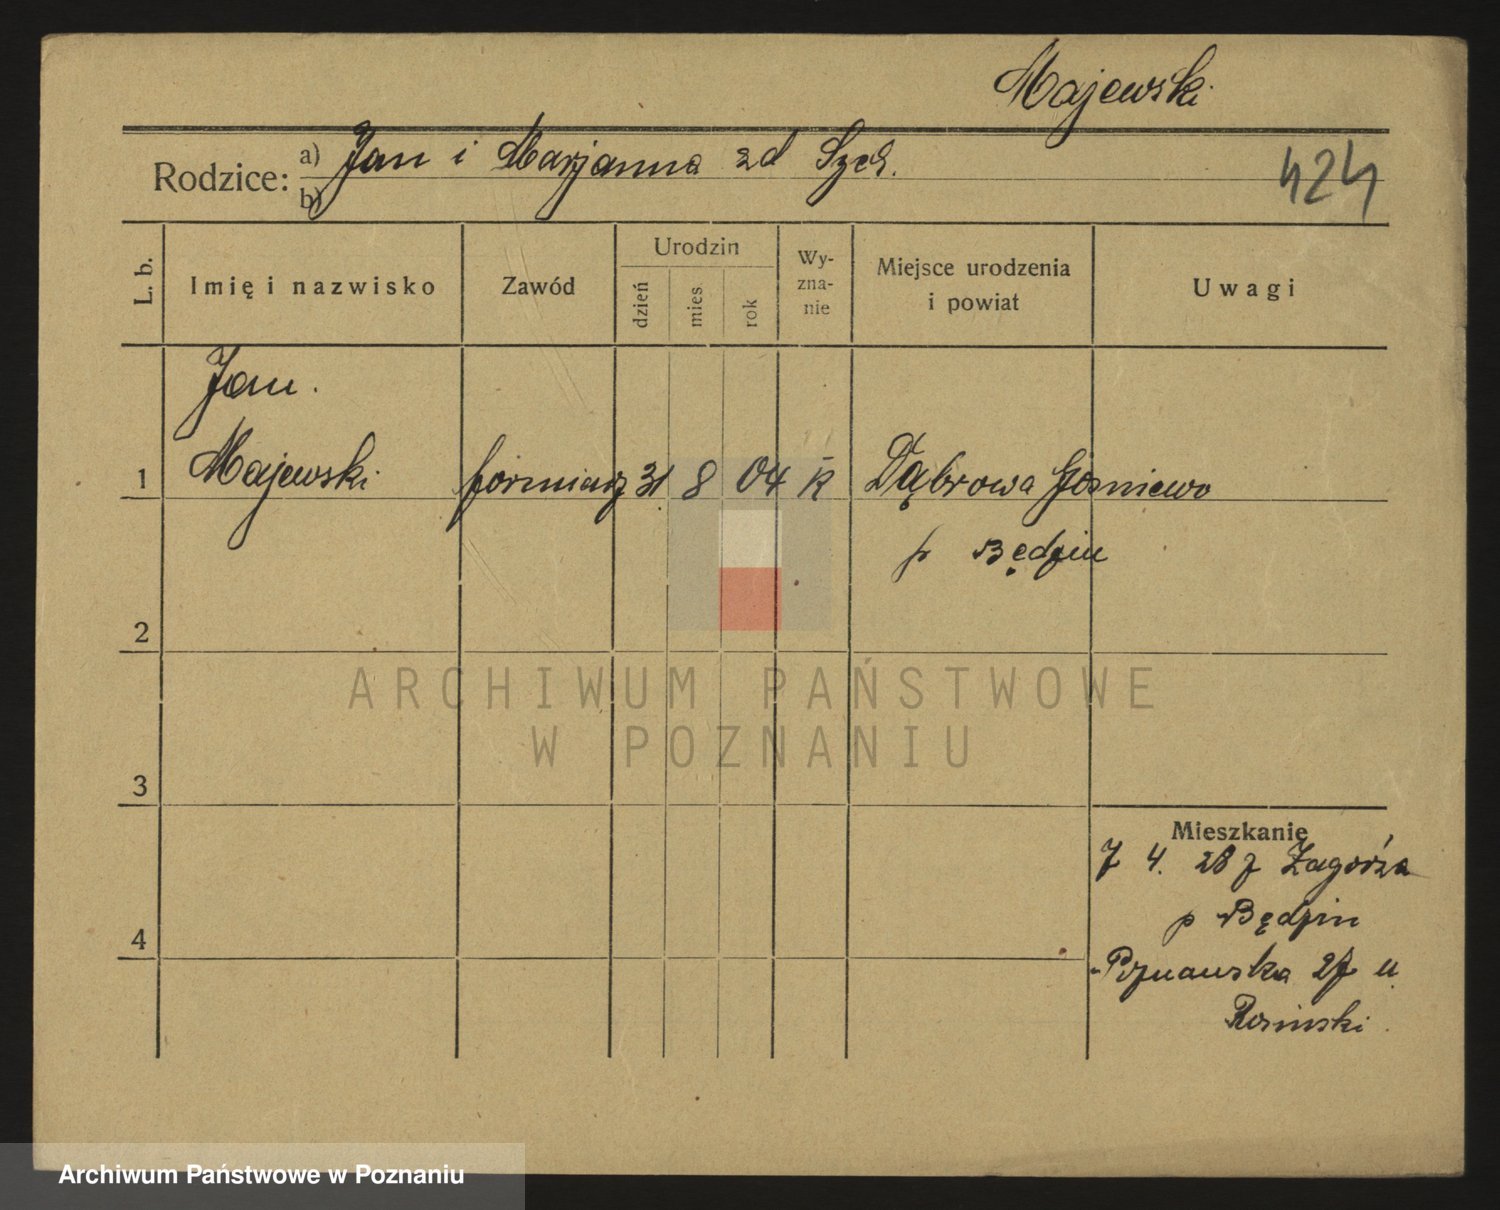 Majewski
Rodzice: a) Jan i Marjanna zd Szех.
b)
424
L. b.
Imię i nazwisko
Zawód
Urodzin
dzień
mies
rok
Wy-
zna-
nie
Miejsce urodzenia
i powiat
Uwagi
Jan.
1 Majewski formiarz 31 8 04 R Dąbrowa
p Będzin
2
3
4
Mieszkanie
7 4. 28 z Zagórza
p Będzin
Poznańska 27 u
Rosinski.
ARCHIWUM PAŃSTWOWE
W POZNANIU
Archiwum Państwowe w Poznaniu